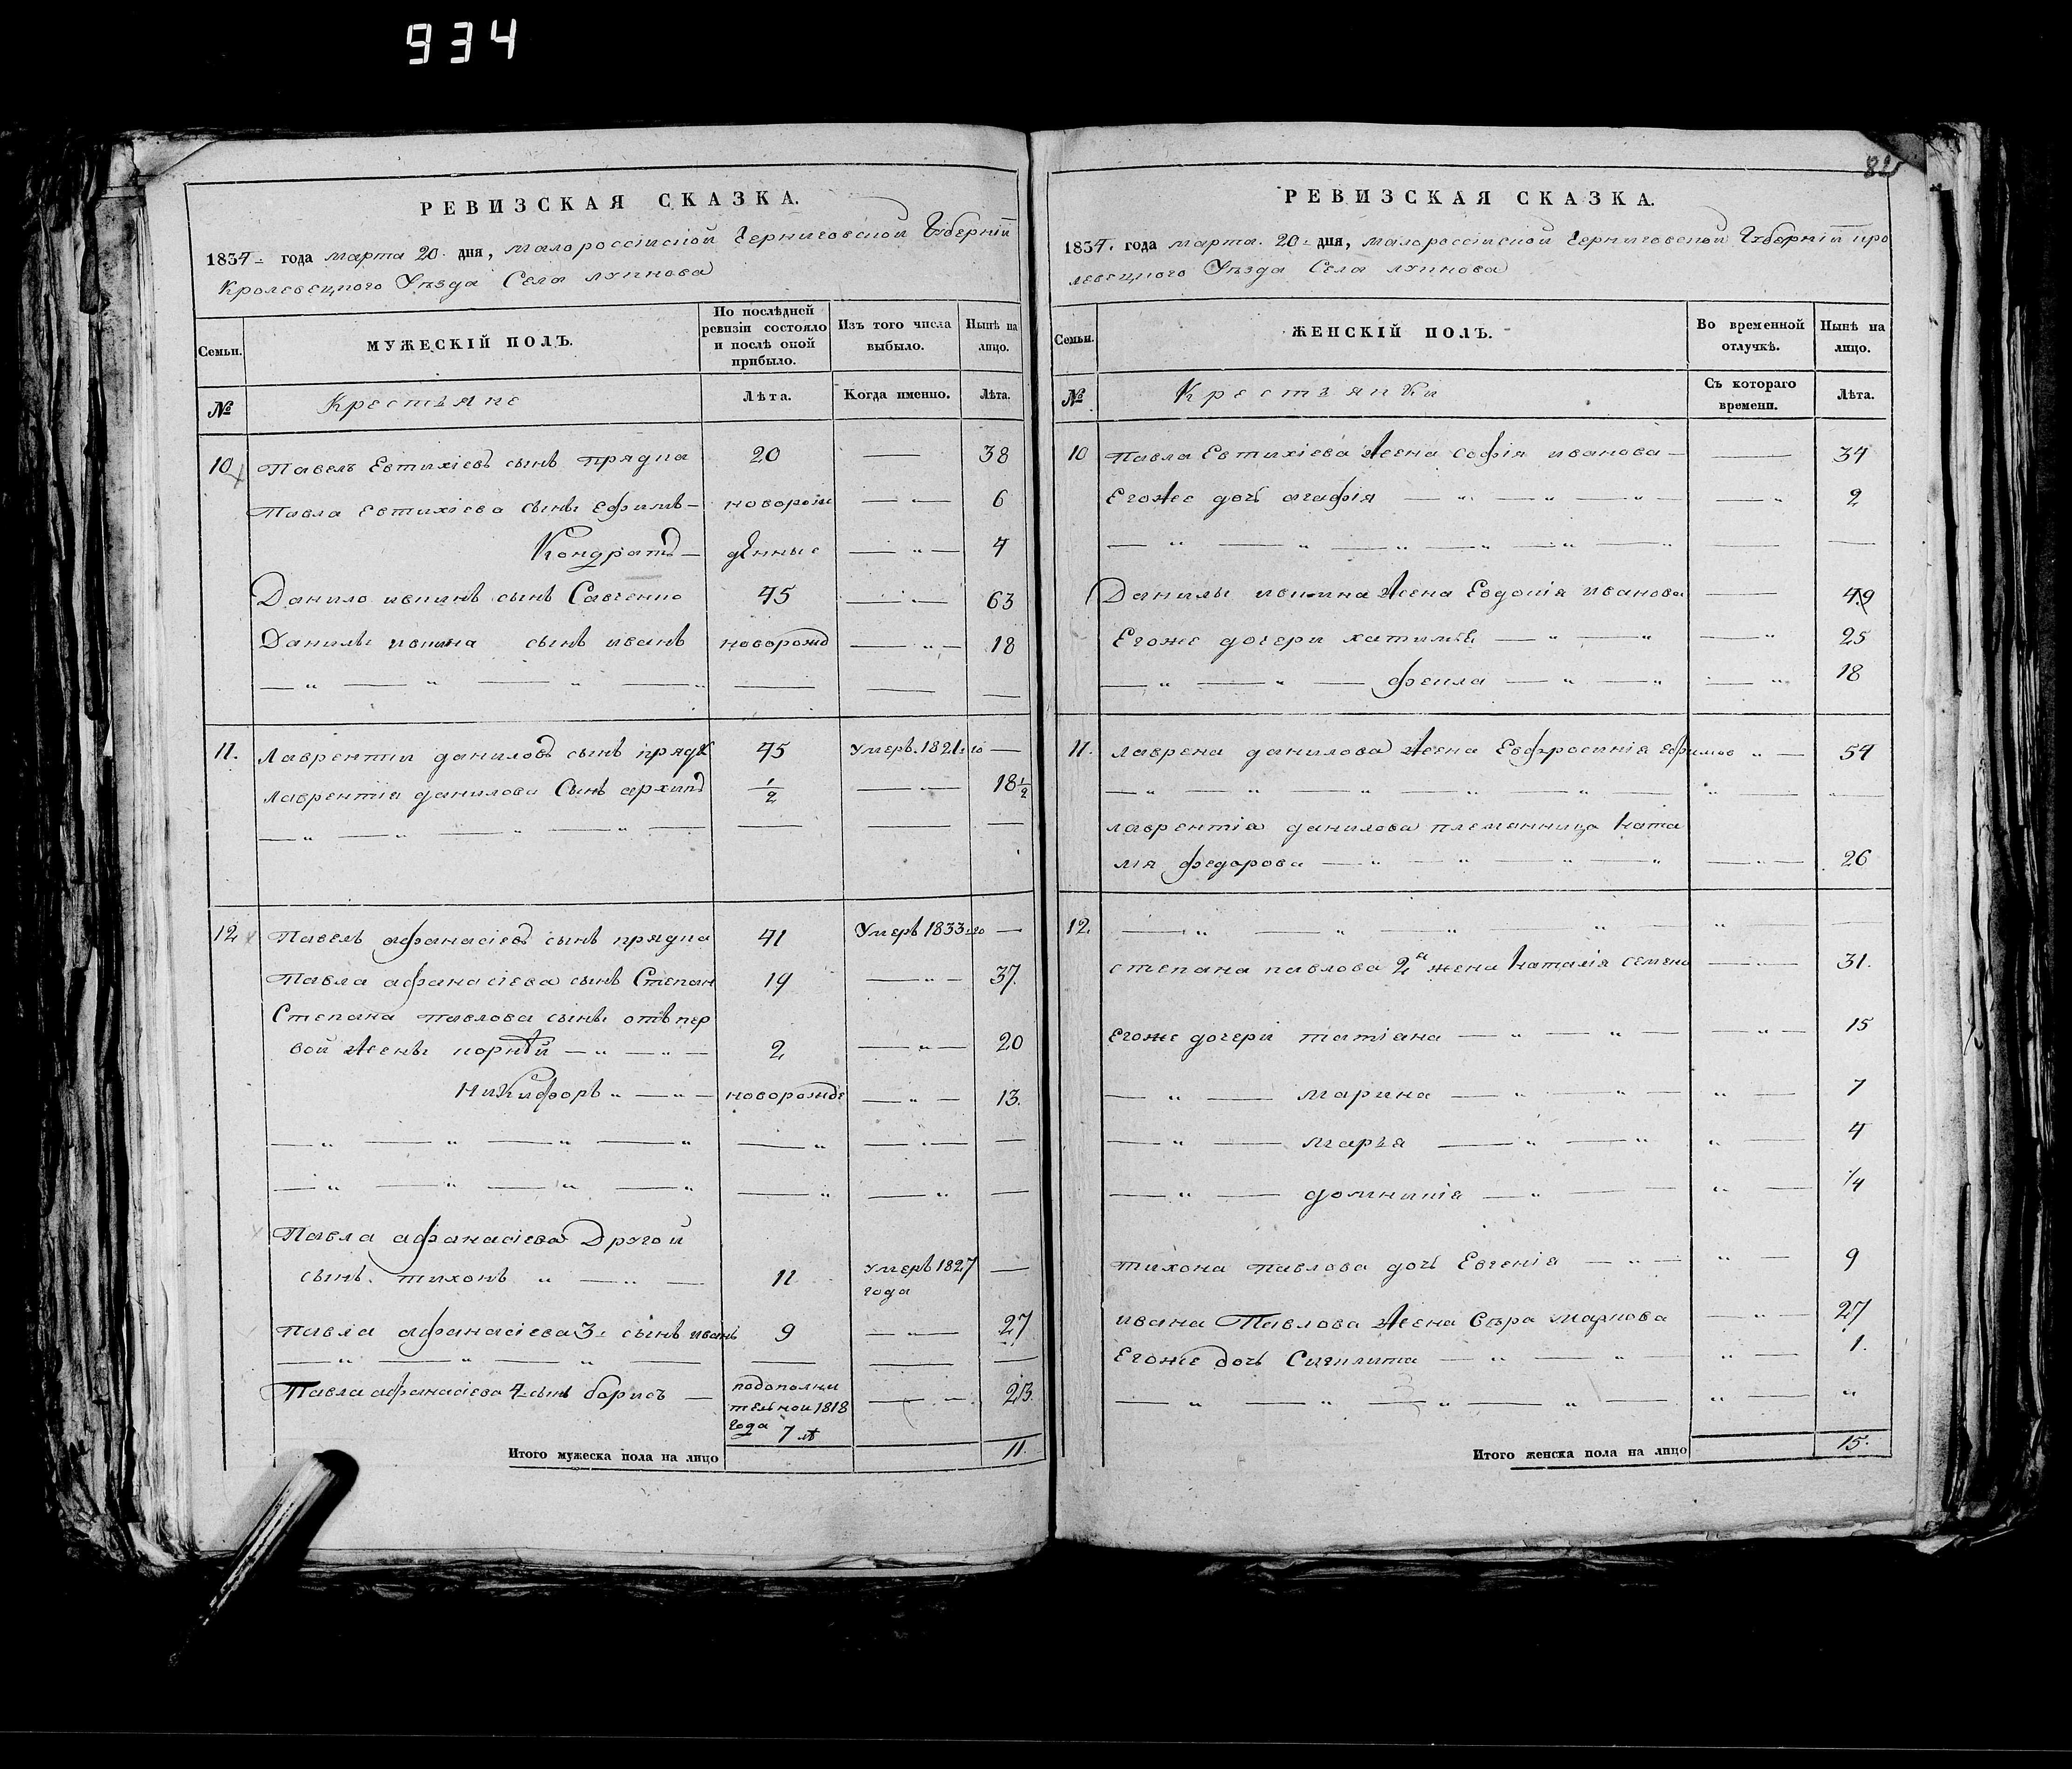 934
825
РЕВИЗСКАЯ СКАЗКА.
1834 года марта 20 дня, малороссійской Черниговской Губерніи
Кролевецкого Уѣзда Села
Семьи.
МУЖЕСКІЙ ПОЛЪ.
По послѣдней ревизіи состояло и послѣ оной прибыло.
Изъ того числа выбыло.
Нынѣ на лицо.
№
Крестьяне
Лѣта.
Когда именно.
Лѣта.
10 Павелъ Евтихіевъ сынъ прядка 20 — 38
Павла Евтихіева сыны Ефимъ — новорож — „ — 6
Кондратъ — денные — „ — 4
Данило сынъ Савченко 45 — „ — 63
Данилы сынъ иванъ новорожд — „ — 18
11. Лаврентіи даниловъ сынъ 45 Умеръ 1821 го —
Лаврентія данилова сынъ архипъ 1/2 — „ — 18 1/2
12 Павелъ афанасіевъ сынъ прядка 41 Умеръ 1833 го —
Павла афанасіева сынъ Степан 19 — „ — 37.
Степана павлова сыны отъ пер
вой жены корнѣй — „ — „ — 2 — „ — 20
Никифоръ „ — „ — новорожде — „ — 13.
Павла афанасіева Другой
сынъ тихонъ „ — „ — 11 умеръ 1827 года —
Павла афанасіева 3й сынъ иванъ 9 — „ — 27
Павла афанасіева 4 сынъ борисъ — подополни тельной 1818 года 7 лѣ — „ — 23.
Итого мужеска пола на лицо 11.
РЕВИЗСКАЯ СКАЗКА.
1834. года марта. 20 дня, малороссійской Черниговской Губерніи кро
левецкого Уѣзда Села
Семьи.
ЖЕНСКІЙ ПОЛЪ.
Во временной отлучкѣ.
Нынѣ на лицо.
№
Крестьянки
Съ котораго времени.
Лѣта.
10 Павла Евтихіева жена софія иванова — 34
Егоже дочь агафія — „ — „ — „ — 2
Данилы жена Евдокія иванова — 49
Егоже дочери — „ — „ — „ 25
— „ — „ — фекла — „ — „ — „ 18
11. лаврена данилова жена Евфросинія ефимов „ — 54
лаврентія данилова племянница ната
лія федорова — „ — „ — „ — „ — 26
12.
степана павлова 2я жена наталія семено — „ — 31.
Егоже дочери татіана — „ — „ — „ — 15
— „ — марина — „ — „ — 7
— „ — марья — „ — „ — 4
— „ — домникія — „ — „ — 1/4
тихона павлова дочь Евгенія — „ — „ — 9
ивана Павлова жена вѣра маркова — „ — 27
Егоже дочь — „ — „ — 1.
Итого женска пола на лицо 15.